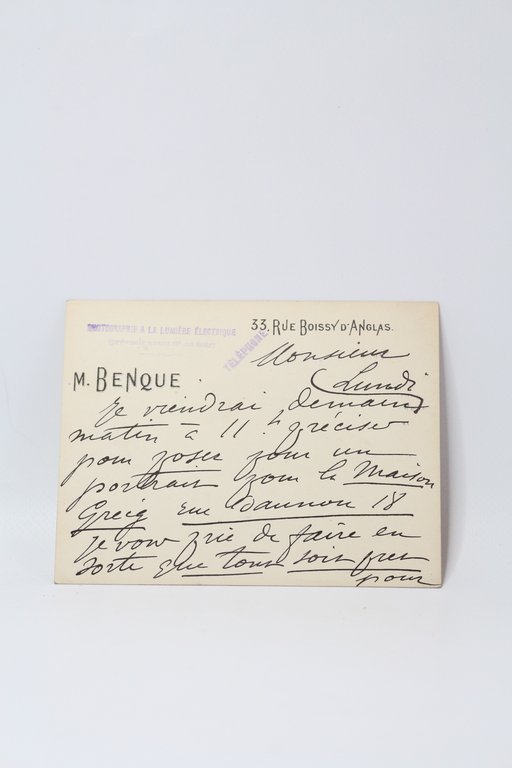 PHOTOGRAPHIE A LA LUMIÈRE ÉLECTRIQUE
33, RUE BOISSY D'ANGLAS.
TÉLÉPHONE
M. BENQUE
Monsieur
Lundi
Je viendrai demain
matin à 11 h précises
pour poser pour un
portrait pour la Maison
Greig rue Daunou 18
Je vous prie de faire en
sorte que tout soit pret
pour